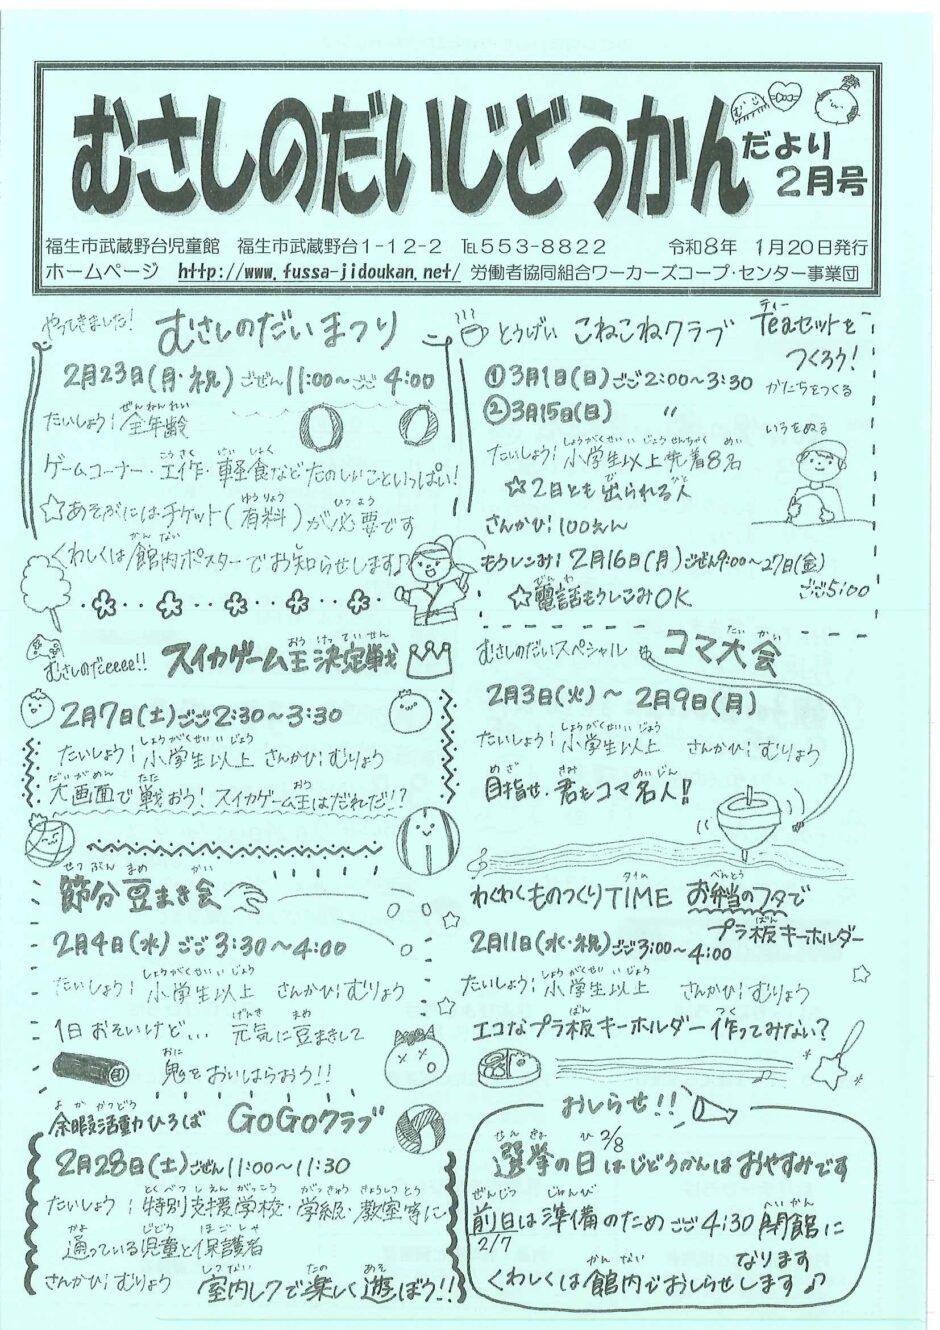 むさしのだいじどうかん だより
2月号
福生市武蔵野台児童館 福生市武蔵野台1-12-2 TEL553-8822 令和8年 1月20日発行
ホームページ http://www.fussa-jidoukan.net/ 労働者協同組合ワーカーズコープ・センター事業団
やってきました! むさしのだいまつり
2月23日(月・祝)ごぜん11:00~ごご4:00
たいしょう:全年齢
ゲームコーナー・工作・軽食などたのしいこといっぱい!
☆あそぶにはチケット(有料)が必要です
くわしくは館内ポスターでお知らせします♪
とうげい こねこねクラブ Teaセットを
つくろう!
①3月1日(日)ごご2:00~3:30 かたちをつくる
②3月15日(日) 〃 いろをぬる
たいしょう:小学生以上先着8名
☆2日とも出られる人
さんかひ:100えん
もうしこみ:2月16日(月)ごぜん9:00~27日(金)
ごご5:00
☆電話もうしこみOK
むさしのだeeee!! スイカゲーム王決定戦
2月7日(土)ごご2:30~3:30
たいしょう:小学生以上 さんかひ:むりょう
大画面で戦おう!スイカゲーム王はだれだ!?
むさしのだいスペシャル コマ大会
2月3日(火)~2月9日(月)
たいしょう:小学生以上 さんかひ:むりょう
目指せ、君もコマ名人!!
節分豆まき会
2月4日(水)ごご3:30~4:00
たいしょう:小学生以上 さんかひ:むりょう
1日おそいけど… 元気に豆まきして
鬼をおいはらおう!!
わくわくものつくりTIME お弁当のフタで
プラ板キーホルダー
2月11日(水・祝)ごご3:00~4:00
たいしょう:小学生以上 さんかひ:むりょう
エコなプラ板キーホルダー作ってみない?
余暇活動ひろば GoGoクラブ
2月28日(土)ごぜん11:00~11:30
たいしょう:特別支援学校・学級・教室等に
通っている児童と保護者
さんかひ:むりょう 室内レクで楽しく遊ぼう!!
おしらせ!!
選挙の日2/8はじどうかんはおやすみです
前日2/7は準備のためごご4:30閉館に
なります
くわしくは館内でおしらせします♪